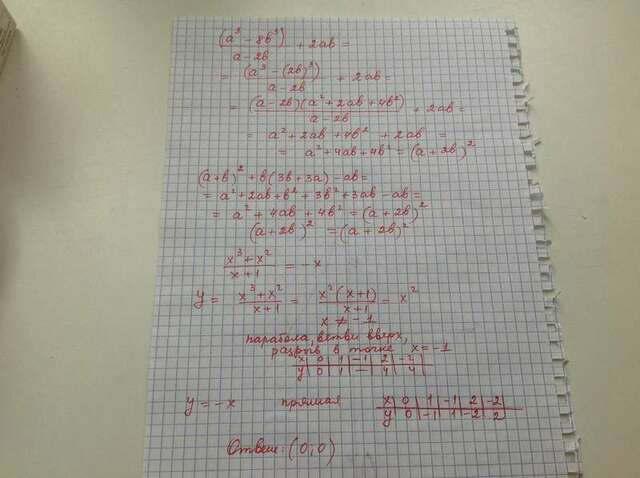 (a³ - 8b³)/(a - 2b) + 2ab =
= (a³ - (2b)³)/(a - 2b) + 2ab =
= (a - 2b)(a² + 2ab + 4b²)/(a - 2b) + 2ab =
= a² + 2ab + 4b² + 2ab =
= a² + 4ab + 4b² = (a + 2b)²
(a + b)² + b(3b + 3a) - ab =
= a² + 2ab + b² + 3b² + 3ab - ab =
= a² + 4ab + 4b² = (a + 2b)²
(a + 2b)² = (a + 2b)²
(x³ + x²)/(x + 1) = -x
y = (x³ + x²)/(x + 1) = x²(x + 1)/(x + 1) = x²
x ≠ -1
парабола, ветви вверх,
разрыв в точке x = -1
x | 0 | 1 | -1 | 2 | -2 |
y | 0 | 1 | - | 4 | 4 |
y = -x прямая
x | 0 | 1 | -1 | 2 | -2 |
y | 0 | -1 | 1 | -2 | 2
Ответ: (0; 0)